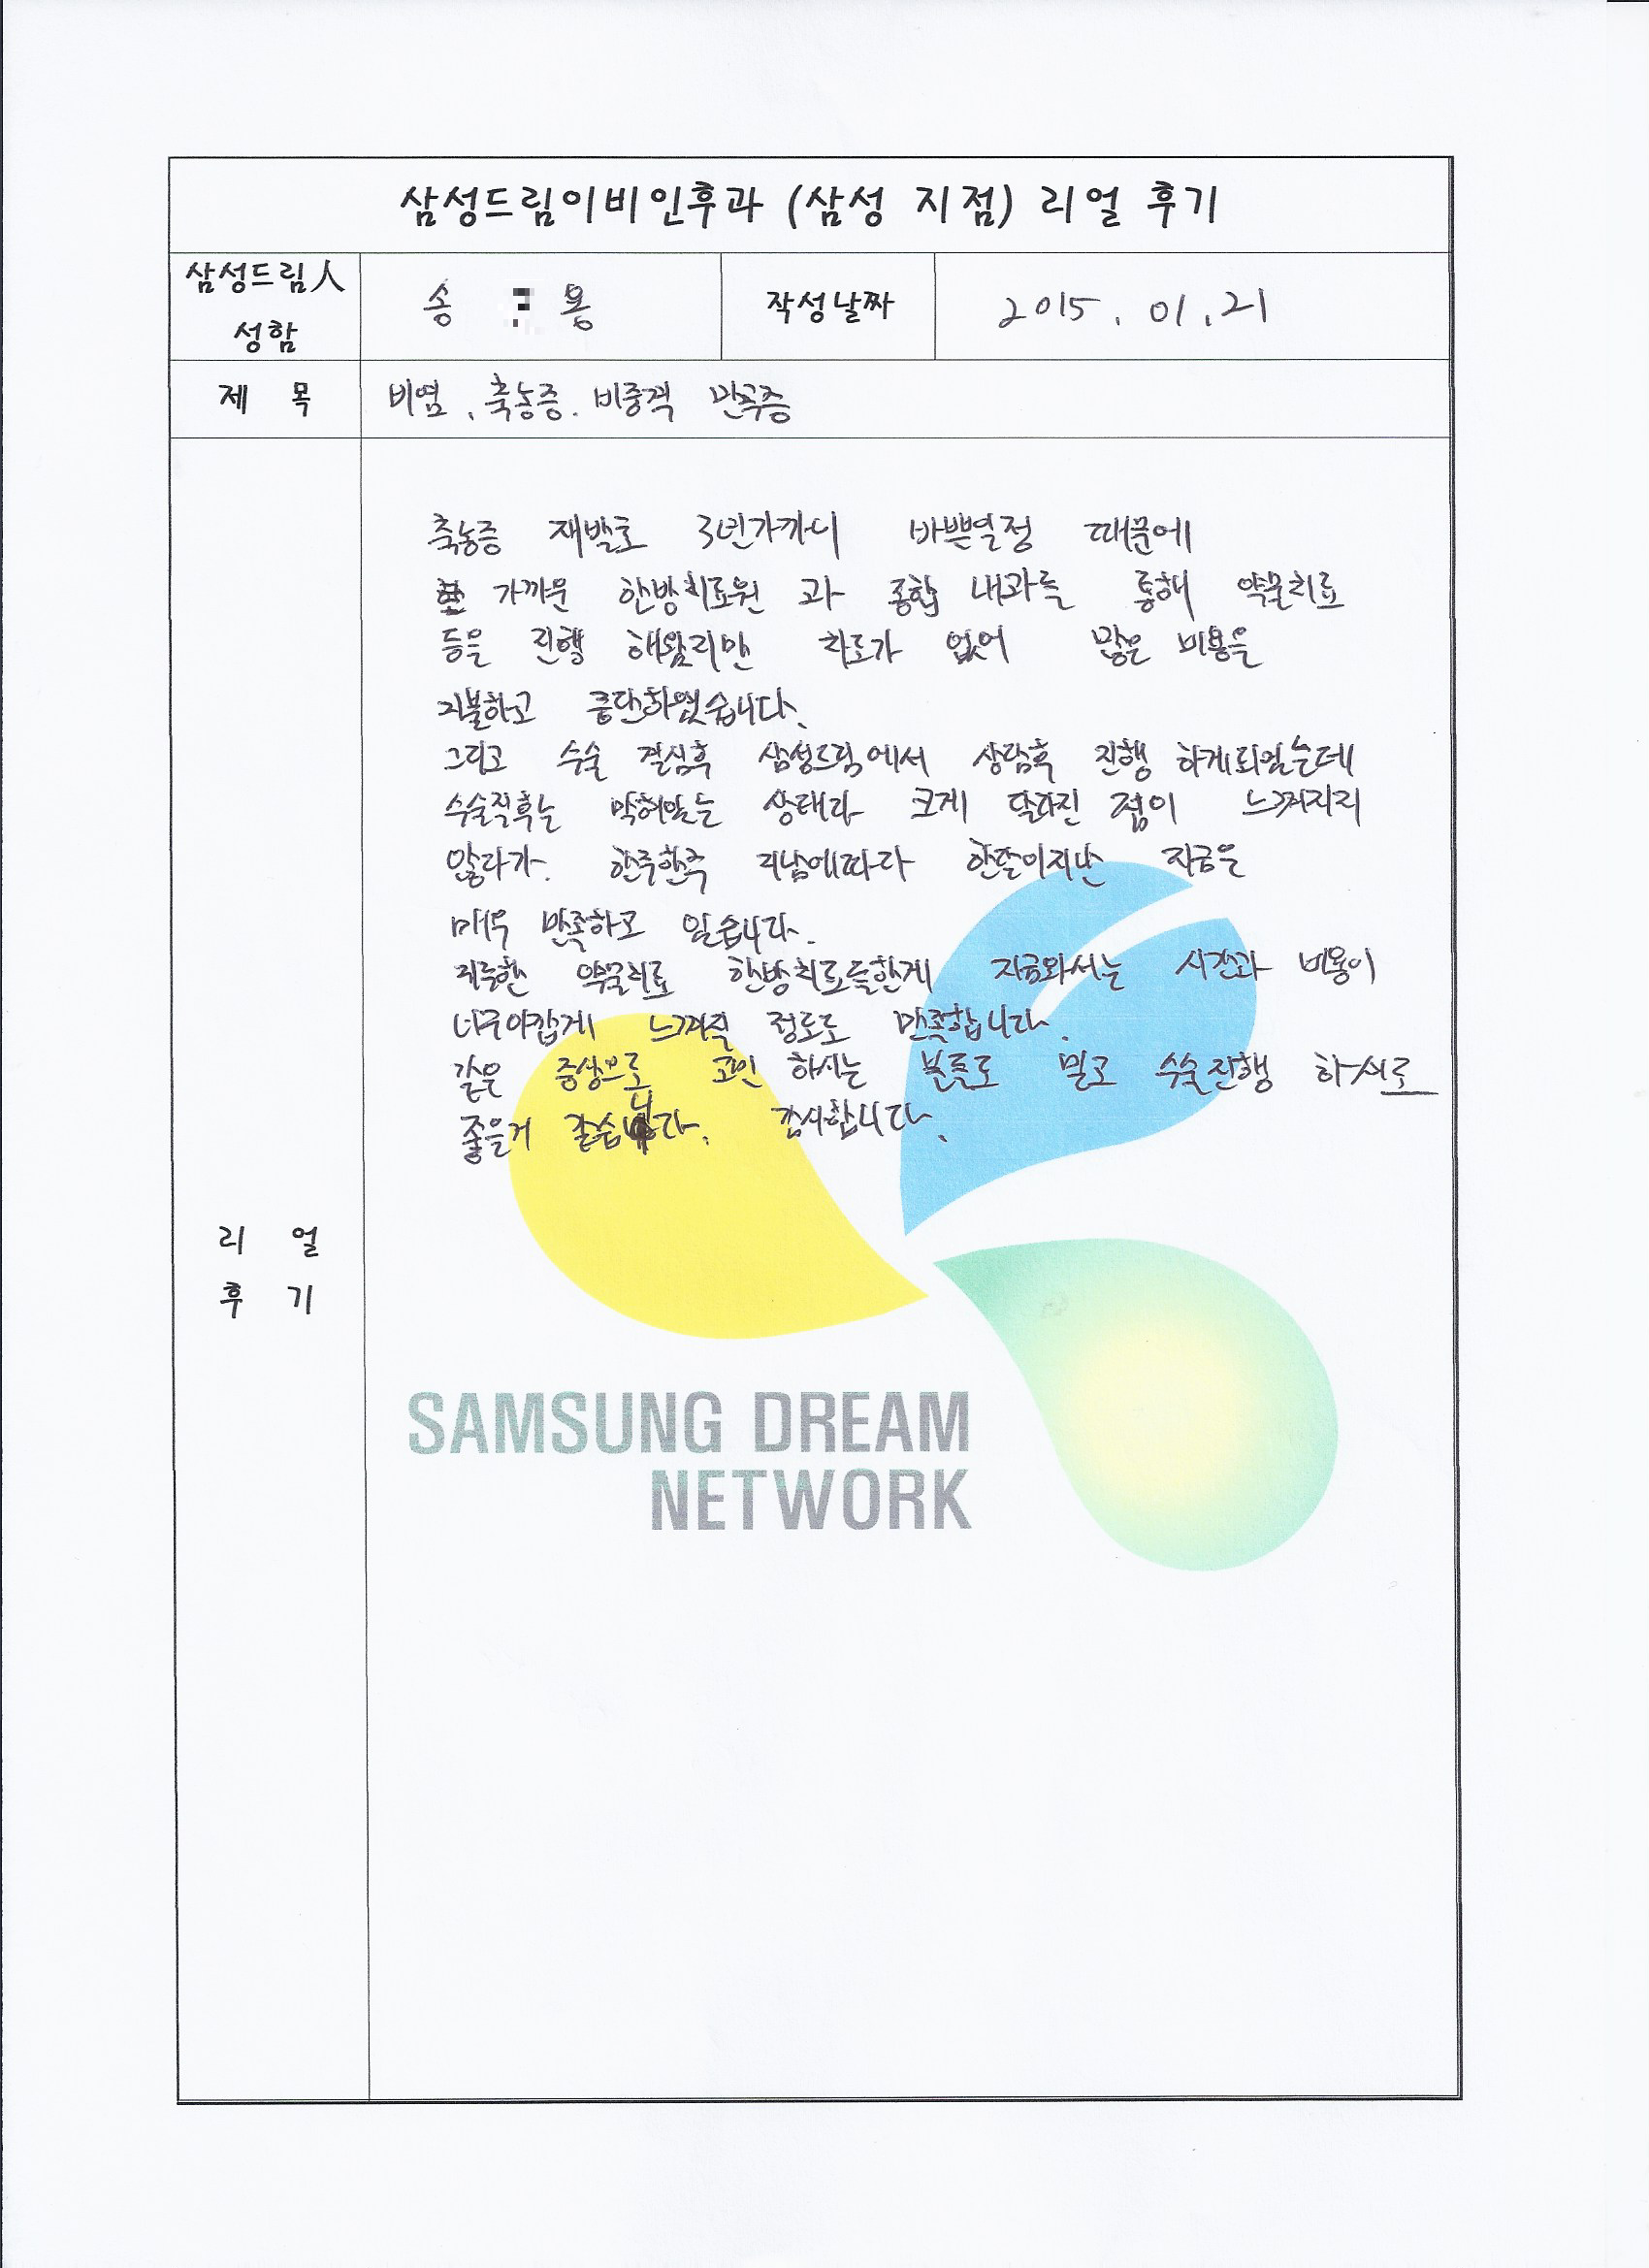 삼성드림이비인후과 (삼성 지점) 리얼 후기
삼성드림人
성함
송 용
작성날짜
2015. 01. 21
제 목
비염, 축농증. 비중격 만곡증
축농증 재발로 3년가까이 바쁜일정 때문에
가까운 한방치료원 과 종합 내과를 통해 약물치료
등을 진행 해왔지만 차도가 없어 많은 비용을
지불하고 중단하였습니다.
그리고 수술 결심후 삼성드림에서 상담후 진행 하게되었는데
수술직후는 막혀있는 상태라 크게 달라진 점이 느껴지지
않다가. 한주한주 지남에따라 한달이지난 지금은
매우 만족하고 있습니다.
지루한 약물치료 한방치료를한게 지금와서는 시간과 비용이
너무아깝게 느껴질 정도로 만족합니다.
같은 증상으로 고민 하시는 분들도 믿고 수술진행 하셔도
좋을거 같습니다. 감사합니다.
리 얼
후 기
SAMSUNG DREAM
NETWORK